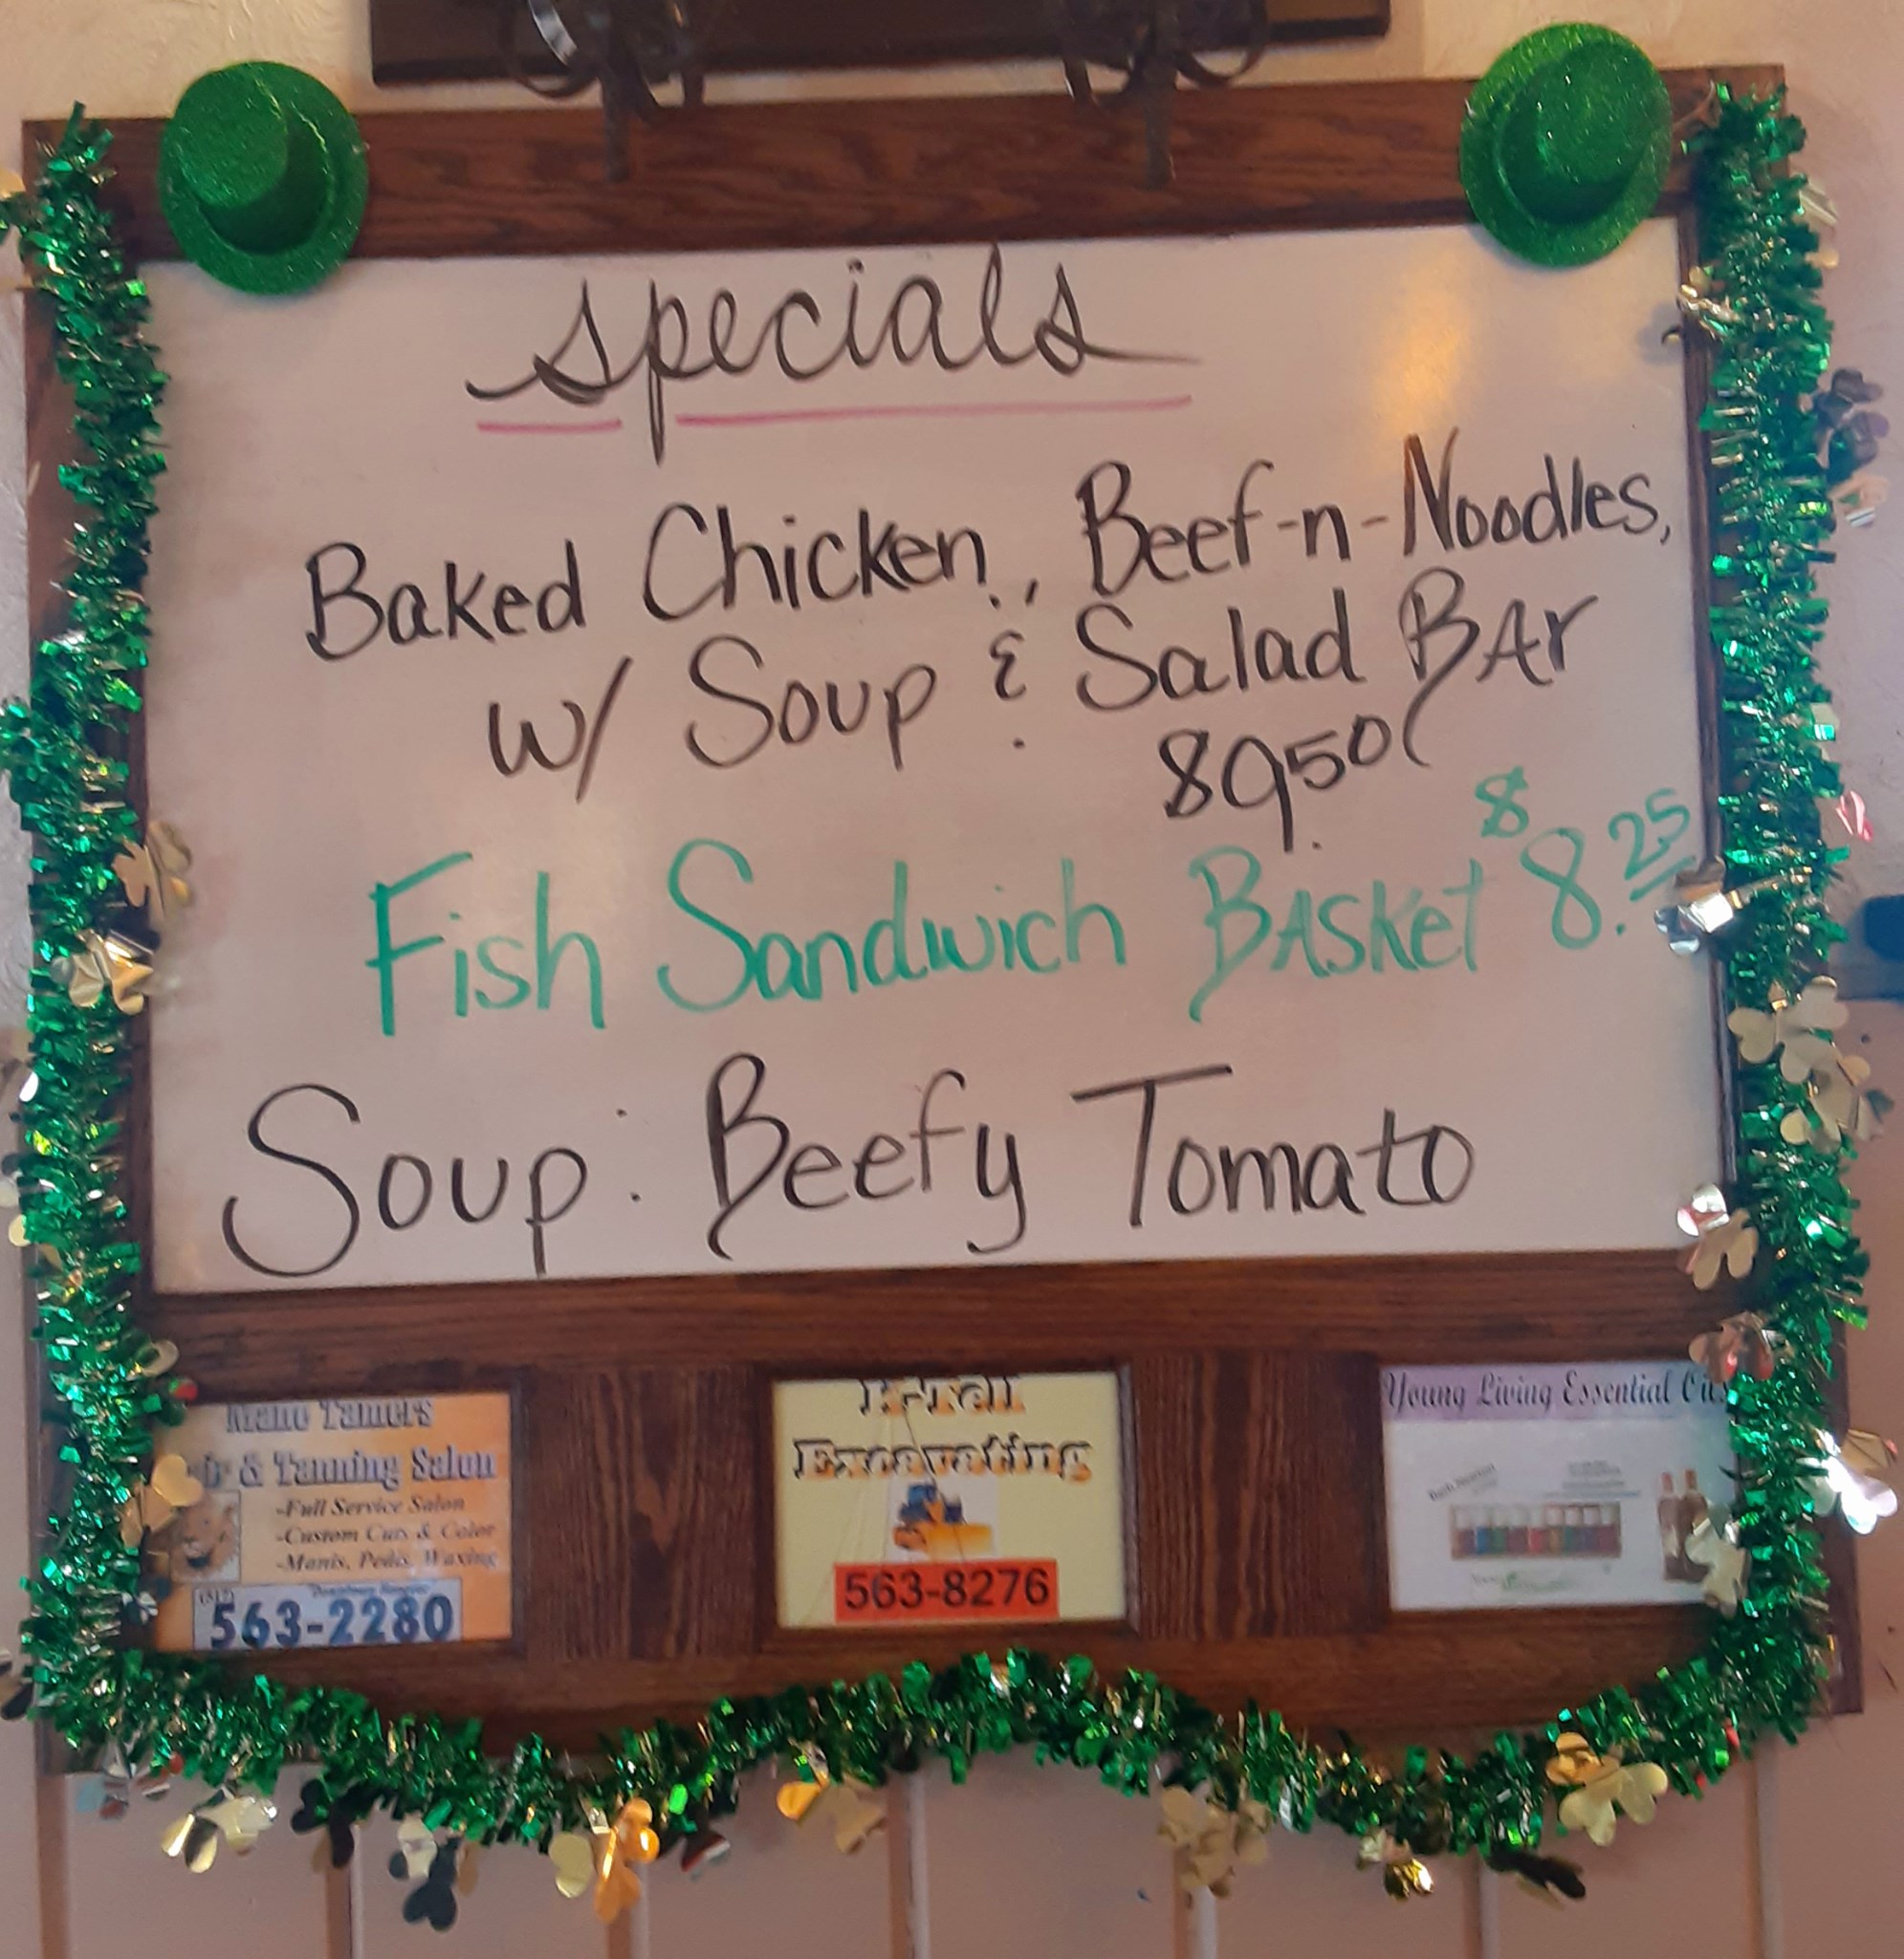 specials
Baked Chicken, Beef-n-Noodles,
w/ Soup & Salad BAr
$9.50
Fish Sandwich BASket $8.25
Soup: Beefy Tomato
Mane Tamers
& Tanning Salon
-Full Service Salon
-Custom Cuts & Color
-Manis, Pedis, Waxing
563-2280
Excavating
563-8276
Young Living Essential Oils